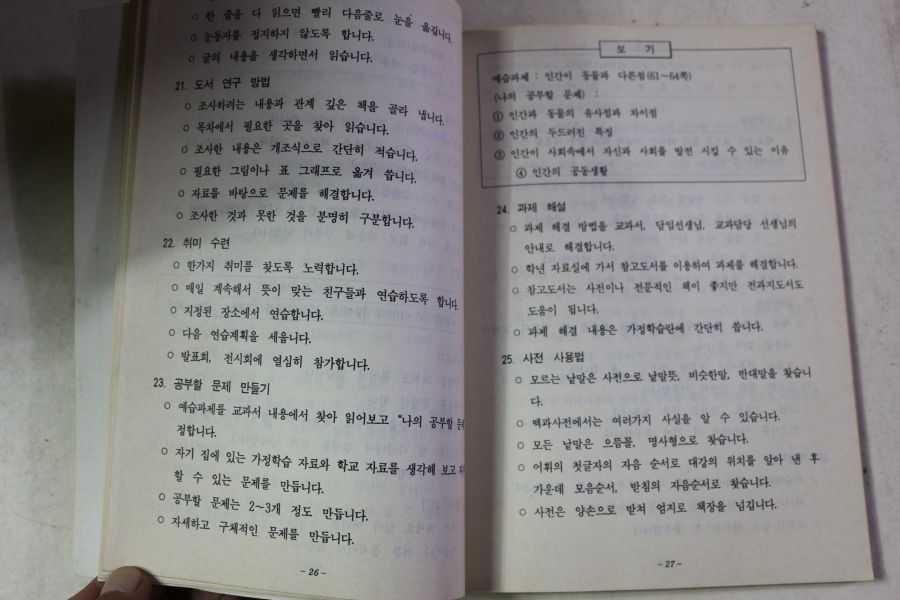 ○ 한 줄을 다 읽으면 빨리 다음줄로 눈을 옮깁니다.
○ 눈동자를 정지하지 않도록 합니다.
○ 글의 내용을 생각하면서 읽습니다.
21. 도서 연구 방법
○ 조사하려는 내용과 관계 깊은 책을 골라 냅니다.
○ 목차에서 필요한 곳을 찾아 읽습니다.
○ 조사한 내용은 개조식으로 간단히 적습니다.
○ 필요한 그림이나 표 그래프로 옮겨 씁니다.
○ 자료를 바탕으로 문제를 해결합니다.
○ 조사한 것과 못한 것을 분명히 구분합니다.
22. 취미 수련
○ 한가지 취미를 찾도록 노력합니다.
○ 매일 계속해서 뜻이 맞는 친구들과 연습하도록 합니다.
○ 지정된 장소에서 연습합니다.
○ 다음 연습계획을 세웁니다.
○ 발표회, 전시회에 열심히 참가합니다.
23. 공부할 문제 만들기
○ 예습과제를 교과서 내용에서 찾아 읽어보고 "나의 공부할
정합니다.
○ 자기 집에 있는 가정학습 자료와 학교 자료를 생각해 보고
할 수 있는 문제를 만듭니다.
○ 공부할 문제는 2~3개 정도 만듭니다.
○ 자세하고 구체적인 문제를 만듭니다.
- 26 -
보 기
예습과제 : 인간이 동물과 다른점(61~64쪽)
(나의 공부할 문제) :
① 인간과 동물의 유사점과 차이점
② 인간의 두드러진 특징
③ 인간이 사회속에서 자신과 사회를 발전 시킬 수 있는 이유
④ 인간의 공동생활
24. 과제 해설
○ 과제 해결 방법을 교과서, 담임선생님, 교과담당 선생님의
안내로 해결합니다.
○ 학년 자료실에 가서 참고도서를 이용하여 과제를 해결합니다.
○ 참고도서는 사전이나 전문적인 책이 좋지만 전과지도서도
도움이 됩니다.
○ 과제 해결 내용은 가정학습란에 간단히 씁니다.
25. 사전 사용법
○ 모르는 낱말은 사전으로 낱말뜻, 비슷한말, 반대말을 찾습니
다.
○ 백과사전에서는 여러가지 사실을 알 수 있습니다.
○ 모든 낱말은 으뜸꼴, 명사형으로 찾습니다.
○ 어휘의 첫글자의 자음 순서로 대강의 위치를 알아 낸 후
가운데 모음순서, 받침의 자음순서로 찾습니다.
○ 사전은 양손으로 받쳐 엄지로 책장을 넘깁니다.
- 27 -